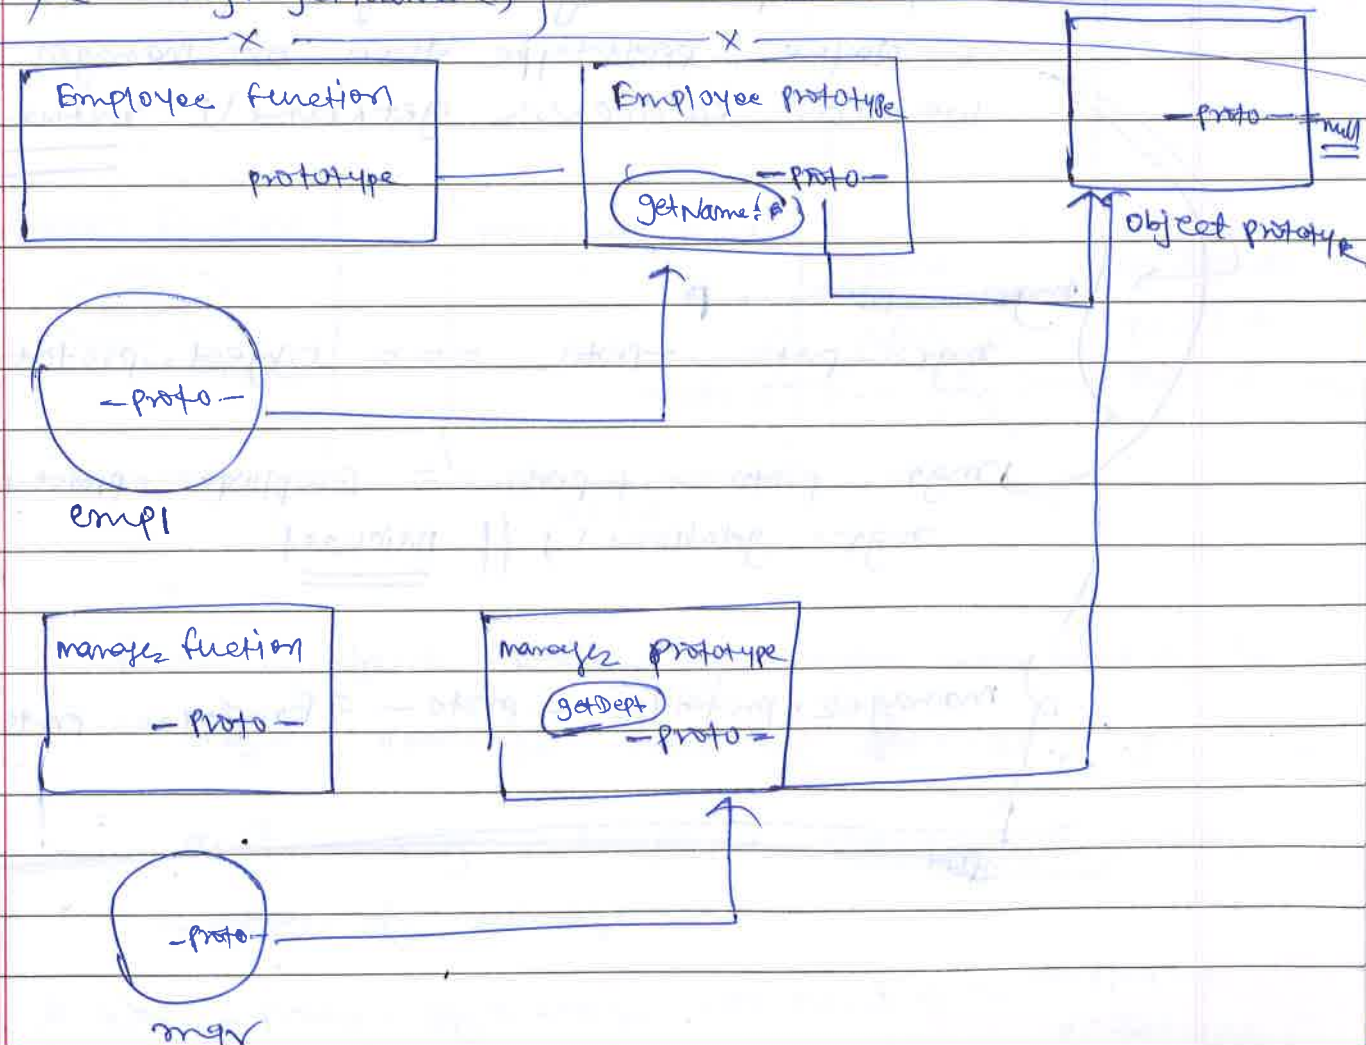 Employee function
prototype
Employee prototype
-proto-
getName()
-proto- = null
object prototype
-proto-
emp1
manager fuction
-proto-
manager prototype
getDept
-proto-
-proto-
mgr